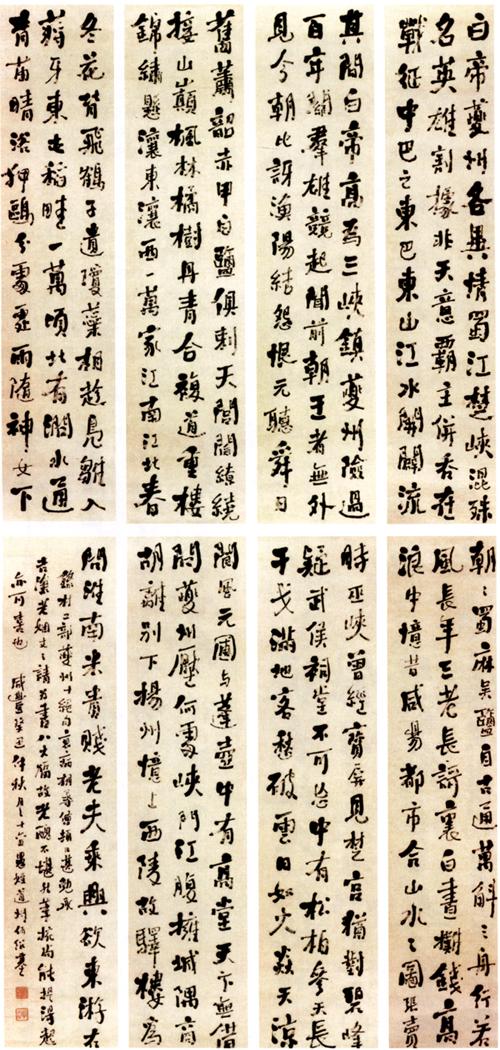 白帝夔州各異情蜀江楚峽混殊
名英雄割據非天意霸主併吞在
戰征中巴之東巴東山江水開闢流
其間白帝高為三峽鎮夔州險過
百牢關羣雄競起聞前朝王者無外
見今朝比訝漁陽結怨恨元聽舜日
舊簫韶赤甲白鹽俱刺天閭閻繚繞
接山巔楓林橘樹丹青合複道重樓
錦繡懸瀼東瀼西一萬家江南江北春
冬花背飛鶴子遺瓊蕊相趁鳧雛入
蔣牙東屯稻畦一萬頃北有澗水通
青苗晴浴狎鷗分處處雨隨神女下
朝〻蜀麻吳鹽自古通萬斛之舟行若
風長年三老長歌裏白晝攤錢高
浪中憶昔咸陽都市合山水之圖張賣
時巫峽曾經寶屏見楚宮猶對碧峰
疑武侯祠堂不可忘中有松柏參天長
干戈滿地客愁破雲日如火炎天涼
閬風元圃與蓬壺中有高堂天下無借
問夔州壓何處峽門江腹擁城隅商
胡離別下揚州憶上西陵故驛樓為
問淮南米貴賤老夫乘興欲東游
夔州十絕句
老姻丈之請為書八大
亦可喜也 咸豐癸丑仲秋月 愚姪道州何紹基